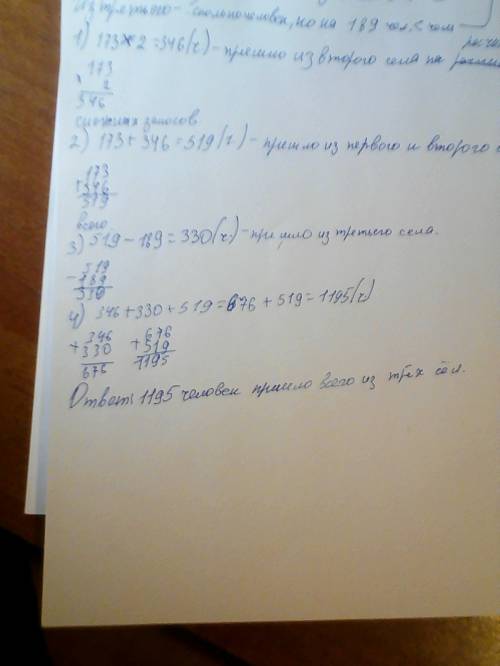 Из третьего - сколько человек, но на 189 чел. < чем
1) 173 × 2 = 346 (ч) - пришло из второго села на
173
× 2
346
снежных заносов
2) 173 + 346 = 519 (ч) - пришло из первого и второго с
173
+ 346
519
всего
3) 519 - 189 = 330 (ч) - пришло из третьего села.
519
- 189
330
4) 346 + 330 + 519 = 676 + 519 = 1195 (ч)
346 676
+ 330 + 519
676 1195
Ответ: 1195 человек пришло всего из трёх сёл.